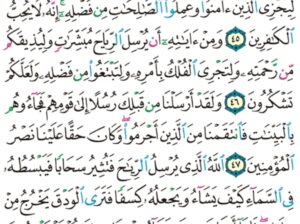 لِيَجْزِيَ الَّذِينَ ءَامَنُوا وَعَمِلُوا الصَّلِحَتِ مِن فَضْلِهِ إِنَّهُ لَا يُحِبُّ
الْكَفِرِينَ ٤٥ وَمِنْ ءَايَتِهِ أَن يُرْسِلَ الرِّيَاحَ مُبَشِّرَتٍ وَلِيُذِيقَكُم
مِّن رَّحْمَتِهِ وَلِتَجْرِيَ الْفُلْكُ بِأَمْرِهِ وَلِتَبْتَغُوا مِن فَضْلِهِ وَلَعَلَّكُمْ
تَشْكُرُونَ ٤٦ وَلَقَدْ أَرْسَلْنَا مِن قَبْلِكَ رُسُلًا إِلَى قَوْمِهِمْ فَجَاءُوهُم
بِالْبَيِّنَتِ فَانتَقَمْنَا مِنَ الَّذِينَ أَجْرَمُوا وَكَانَ حَقًّا عَلَيْنَا نَصْرُ
الْمُؤْمِنِينَ ٤٧ اللَّهُ الَّذِي يُرْسِلُ الرِّيَاحَ فَتُثِيرُ سَحَابًا فَيَبْسُطُهُ
فِي السَّمَاءِ كَيْفَ يَشَاءُ وَيَجْعَلُهُ كِسَفًا فَتَرَى الْوَدْقَ يَخْرُجُ مِنْ